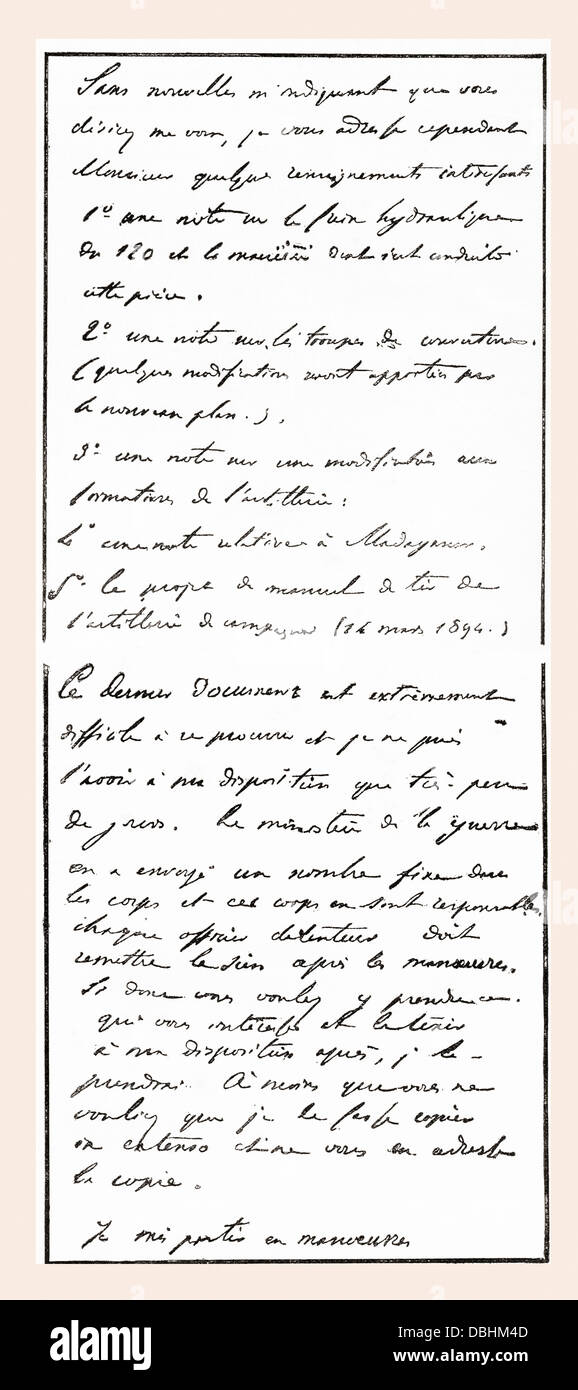 Sans nouvelles m'indiquant que vous
désirez me voir, je vous adresse cependant
Monsieur quelques renseignements intéressants
1º une note sur le frein hydraulique
du 120 et la manière dont s'est conduite
cette pièce.
2º une note sur les troupes de couverture.
(quelques modifications seront apportées par
le nouveau plan.).
3º une note sur une modification aux
formations de l'artillerie:
4º une note relative à Madagascar.
5º le projet de manuel de tir de
l'artillerie de campagne (14 mars 1894.)
Ce dernier document est extrêmement
difficile à se procurer et je ne puis
l'avoir à ma disposition que très peu
de jours. Le ministère de la guerre
en a envoyé un nombre fixe dans
les corps et ces corps en sont responsables,
chaque officier détenteur doit
remettre le sien après les manœuvres.
Si donc vous voulez y prendre ce
qui vous intéresse et le tenir
à ma disposition après, je le
prendrai. À moins que vous ne
vouliez que je le fasse copier
in extenso et ne vous en adresse
la copie.
Je suis parti en manœuvres
alamy
DBHM4D
www.alamy.com